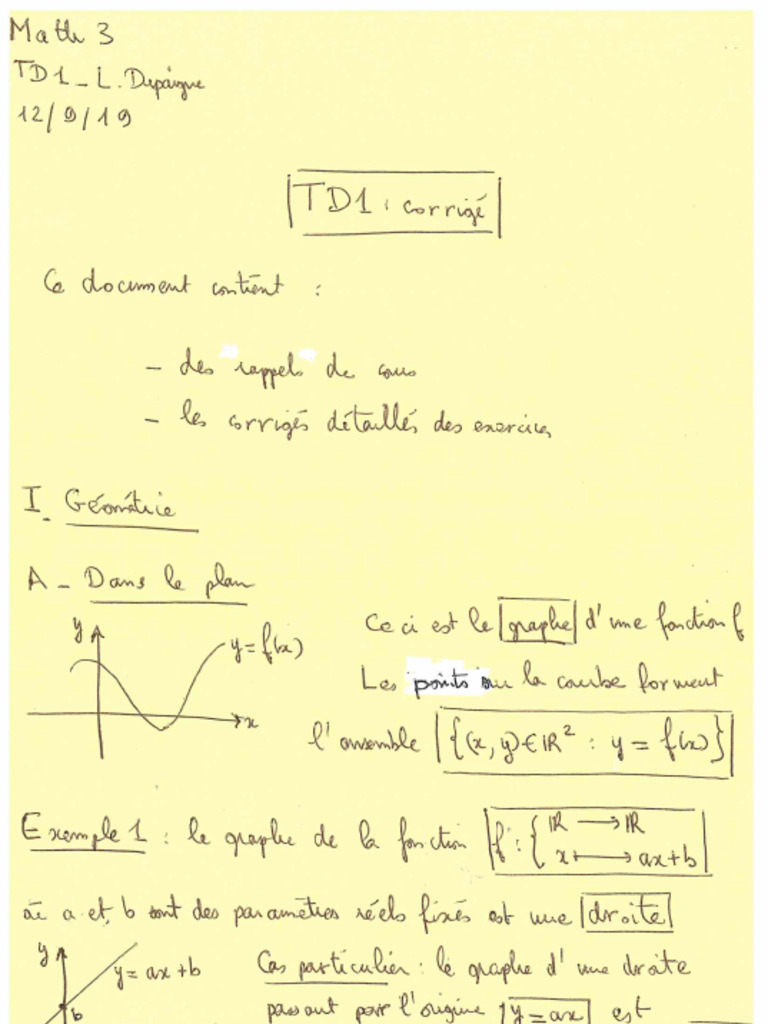 Math 3
TD1 - L. Dupaigne
12/9/19
TD1 : corrigé
Ce document contient :
- des rappels de cours
- les corrigés détaillés des exercices
I. Géométrie
A - Dans le plan
y
y = f(x)
x
Ceci est le graphe d'une fonction f
Les points sur la courbe forment
l'ensemble {(x, y) ∈ ℝ² : y = f(x)}
Exemple 1 : le graphe de la fonction f : { ℝ → ℝ
x ⟼ ax+b
où a et b sont des paramètres réels fixés est une droite
y
y = ax+b
b
Cas particulier : le graphe d'une droite
passant par l'origine y = ax est